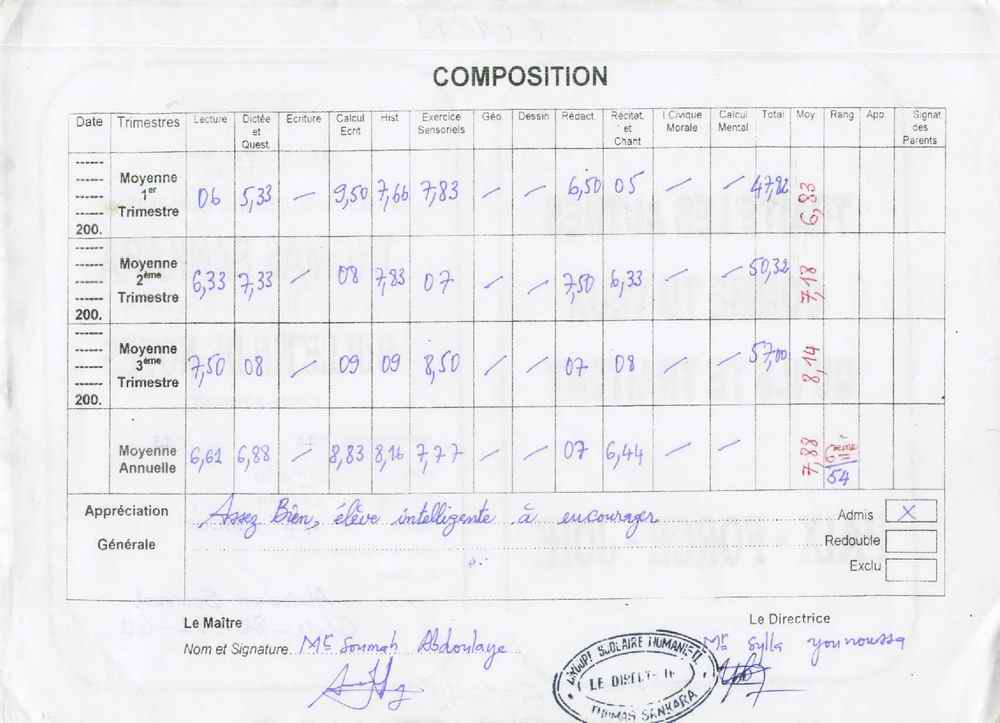 COMPOSITION
Date Trimestres Lecture Dictée et Quest. Ecriture Calcul Ecrit Hist Exercice Sensoriels Géo. Dessin Rédact. Récitat. et Chant I.Civique Morale Calcul Mental Total Moy Rang App. Signat des Parents
200. Moyenne 1er Trimestre 06 5,33 — 9,50 7,66 7,83 — — 6,50 05 — — 47,82 6,83
200. Moyenne 2ème Trimestre 6,33 7,33 — 08 7,83 07 — — 7,50 6,33 — — 50,32 7,18
200. Moyenne 3ème Trimestre 7,50 08 — 09 09 8,50 — — 07 08 — — 57,00 8,14
Moyenne Annuelle 6,61 6,88 — 8,83 8,16 7,77 — — 07 6,44 — — 7,88 6ème 54
Appréciation Générale
Assez Bien, élève intelligente à encourager
Admis X
Redouble
Exclu
Le Maître
Nom et Signature. Mr Soumah Abdoulaye
Le Directrice
Mr Sylla Younoussa
GROUPE SCOLAIRE
THOMAS SANKARA